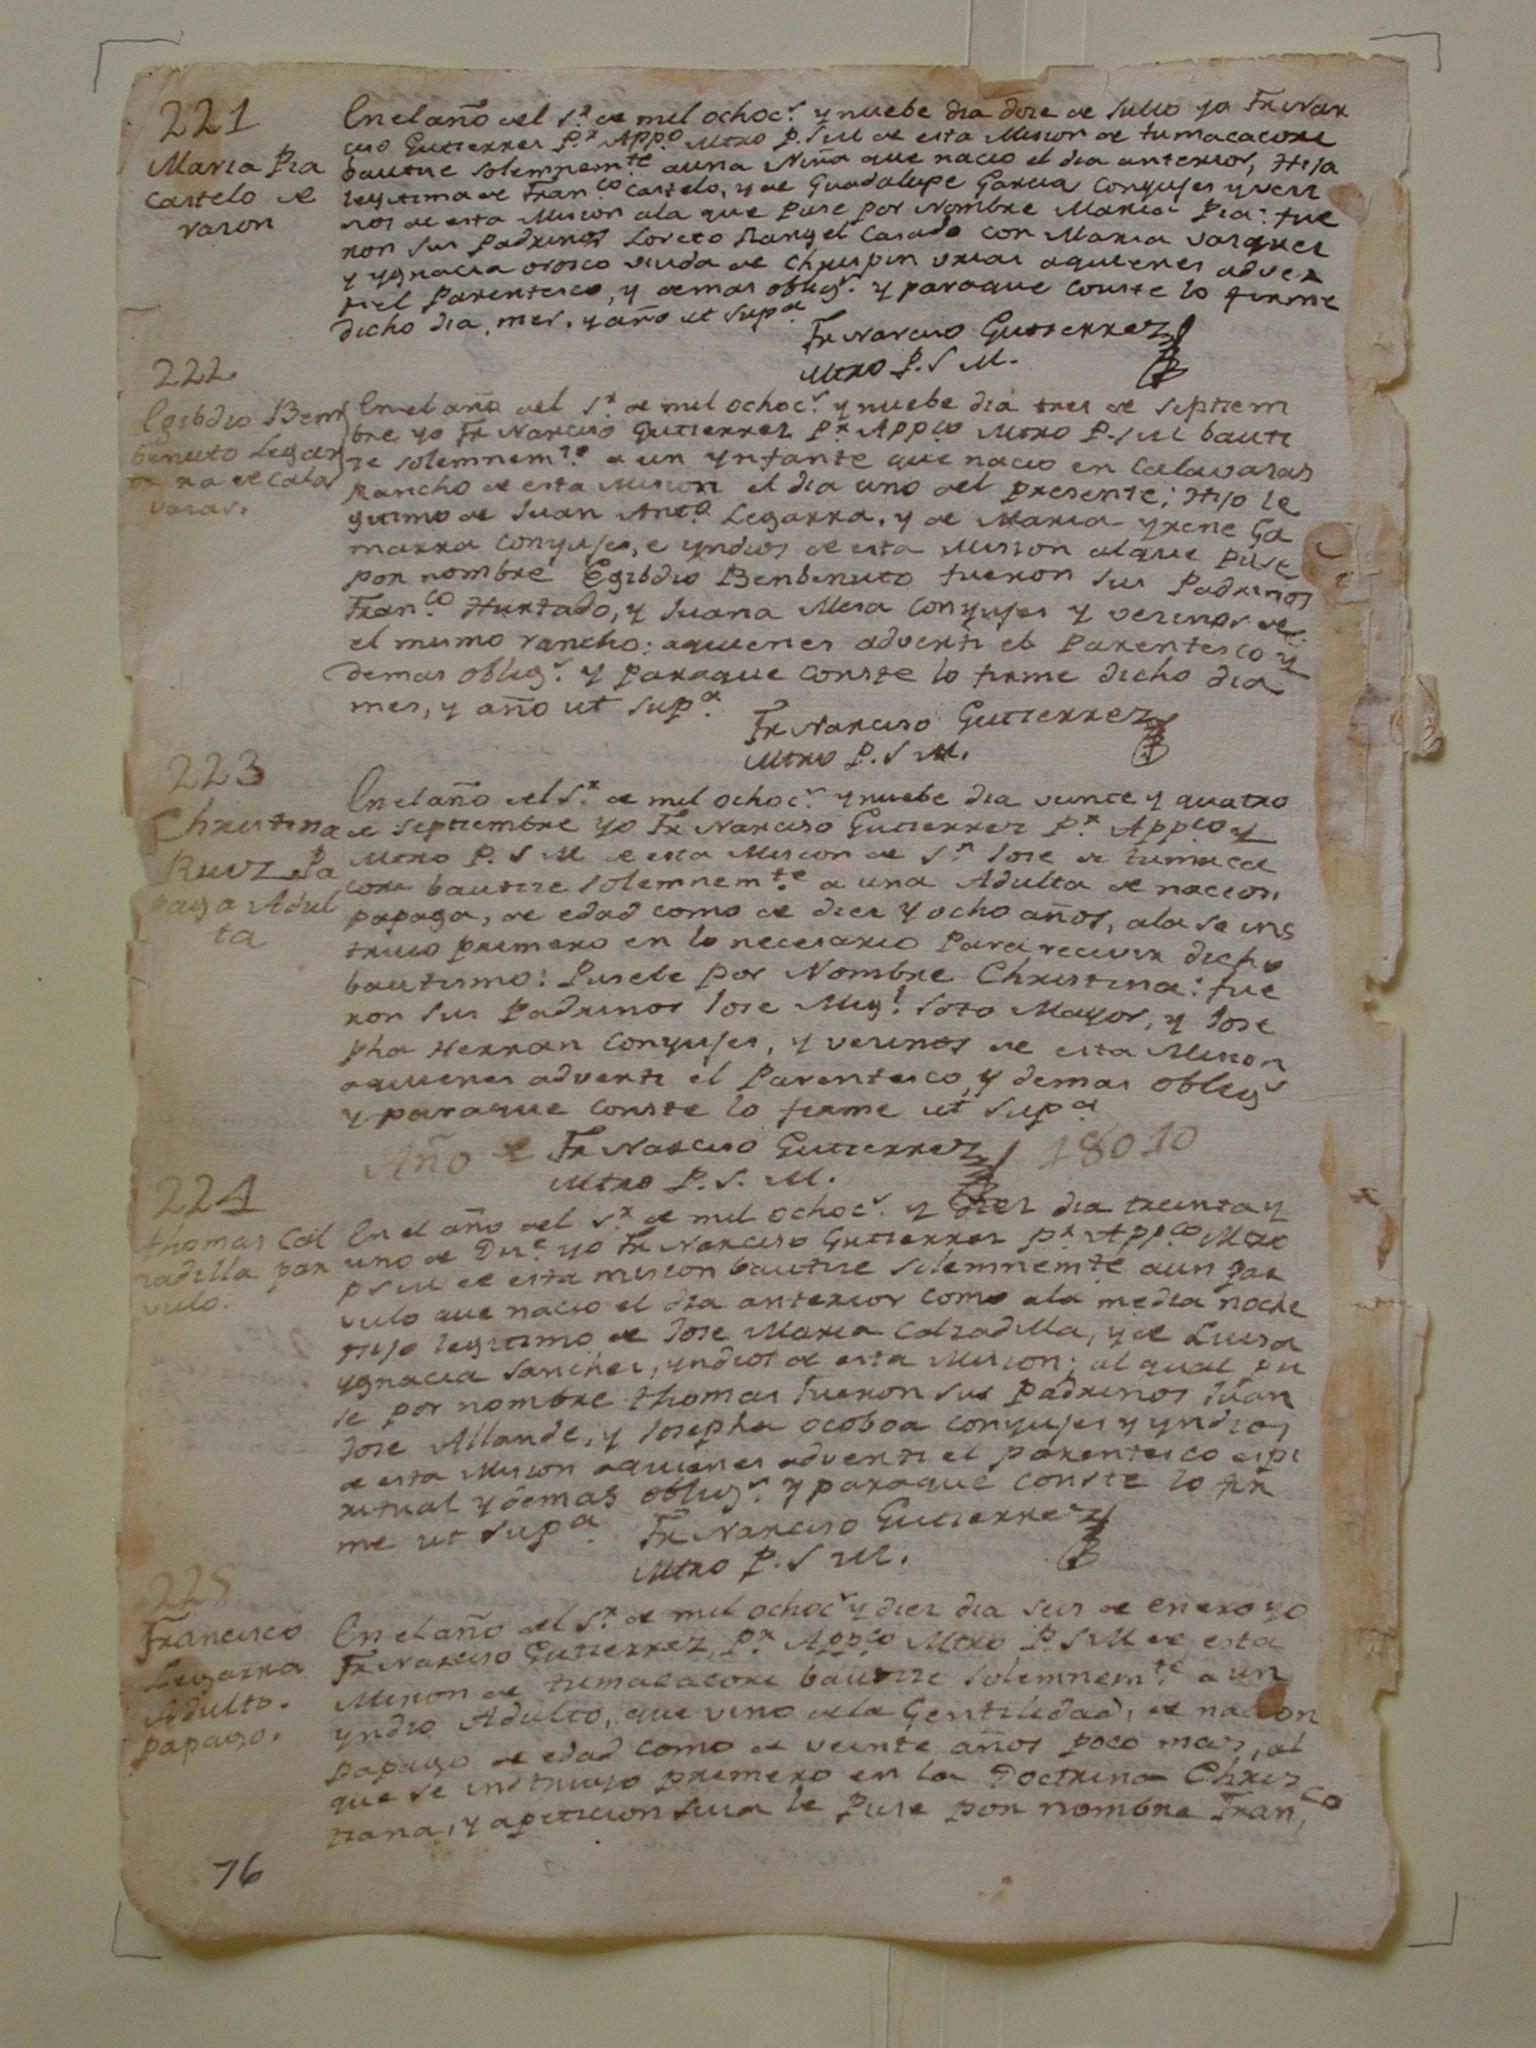 221
Maria Pia
Castelo de
razon
En el año del Sr. de mil ochocs. y nuebe dia doze de Julio yo Fr Nar
ciso Gutierrez Pr. Appo. Mtro P. S M de esta Mision de tumacacori
bautize solemnemte. a una Niña que nacio el dia anterior, Hija
legitima de Franco. Castelo, y de Guadalupe Garcia Conyujes y vezi
nos de esta Mision a la que puse por Nombre Maria Pia: fue
ron sus Padrinos Loreto Rangel Casado con Maria Vasquez
y ygnacia orosco viuda de Chrispin urias aquienes adver
ti el Parentesco, y demas obligs. y paraque conste lo firme
dicho dia, mes, y año ut supa.
Fr Narciso Gutierrez
Mtro P. S M.
222
Egibdio Ben
benuto Legar
ra de Cala
vasas.
En el año del Sr. de mil ochocs. y nuebe dia tres de Septiem
bre, yo Fr Narciso Gutierrez Pr. Appco Mtro P. S M bauti
ze solemnemte. a un ynfante que nacio en Calavasas
Rancho de esta Mision el dia uno del presente; Hijo le
gitimo de Juan Anto. Legarra, y de Maria yrene Ga
marra Conyujes, e yndios de esta Mision al que puse
por nombre Egibdio Benbenuto fueron sus Padrinos
Franco. Hurtado, y Juana Mesa Conyujes y vezinos de
el mismo rancho: aquienes adverti el Parentesco y
demas obligs. y paraque conste lo firme dicho dia
mes, y año ut supa.
Fr Narciso Gutierrez
Mtro P. S M.
223
Christina
Ruiz Pa
paga Adul
ta
En el año del Sr. de mil ochocs. y nuebe dia veinte y quatro
de Septiembre yo Fr Narciso Gutierrez Pr. Appco y
Mtro P. S M de esta Mision de Sn Jose de tumaca
cori bautize solemnemte. a una Adulta de nacion
papaga, de edad como de diez y ocho años, ala se ins
truio primero en lo necesario para recivir dicho
bautismo: Pusele por Nombre Christina: fue
ron sus Padrinos Jose Migl. Soto Mayor, y Jose
pha Herran Conyujes, y vezinos de esta Mision
aquienes adverti el Parentesco, y demas obligs
y paraque conste lo firme ut supa
Fr Narciso Gutierrez
Mtro P. S. M.
Año de 18010
224
thomas Cal
zadilla par
vulo.
En el año del Sr. de mil ochocs. y diez dia treinta y
uno de Dize. yo Fr Narciso Gutierrez Pr. Appco. Mtro
P S M de esta mision bautize solemnemte a un par
vulo que nacio el dia anterior como ala media noche
Hijo legitimo de Jose Maria Calzadilla, y de Luisa
ygnacia Sanchez, yndios de esta Mision; al qual pu
se por nombre thomas fueron sus Padrinos Juan
Jose Allande, y Josepha ocoboa conyujes y yndios
de esta Mision aquienes adverti el parentesco espi
ritual y demas obligs. y paraque conste lo fir
me ut supa.
Fr Narciso Gutierrez
Mtro P. S M.
225
Francisco
Legarra
Adulto.
papago.
En el año del Sr. de mil ochocs y diez dia seis de enero yo
Fr Narciso Gutierrez, Pr. Appco Mtro P. S M de esta
Mision de tumacacori bautize solemnemte. a un
yndio Adulto, que vino de la Gentilidad, de nacion
papago de edad como de veinte años poco mas, al
que se instruyo primero en la Doctrina Chris
tiana, y a peticion suia le puse por nombre Franco
76